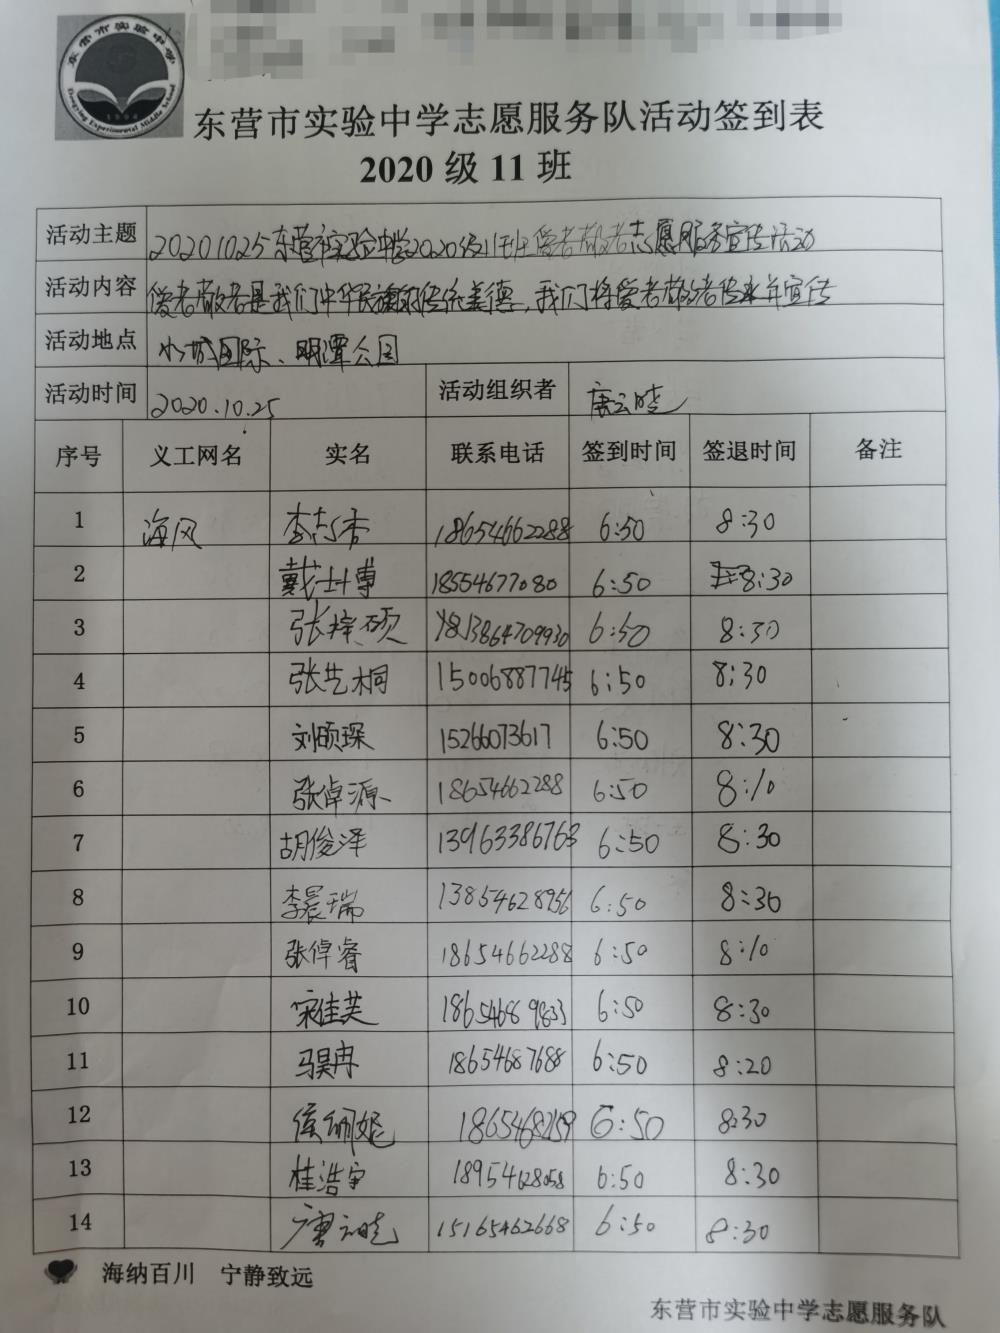 东营市实验中学
Dongying Experimental Middle School
东营市实验中学志愿服务队活动签到表
2020 级 11 班
活动主题 20201025东营市实验中学2020级11班爱老敬老志愿服务宣传活动
活动内容 爱老敬老是我们中华民族的传统美德,我们将爱老敬老传承并宣传
活动地点 水城国际、明潭公园
活动时间 2020.10.25 活动组织者 唐云晓
序号 义工网名 实名 联系电话 签到时间 签退时间 备注
1 海风 李志香 18654662288 6:50 8:30
2 戴士博 18554677080 6:50 8:30
3 张梓硕 13864709930 6:50 8:30
4 张艺桐 15006887745 6:50 8:30
5 刘颐琛 15266073617 6:50 8:30
6 张倬源 18654662288 6:50 8:10
7 胡俊泽 13963386763 6:50 8:30
8 李晨瑞 13854628956 6:50 8:30
9 张倬睿 18654662288 6:50 8:10
10 宋佳芙 18654689833 6:50 8:30
11 马昊冉 18654687688 6:50 8:20
12 6:50 8:30
13 桂浩宇 18954628058 6:50 8:30
14 唐云晓 15165462668 6:50 8:30
海纳百川 宁静致远
东营市实验中学志愿服务队